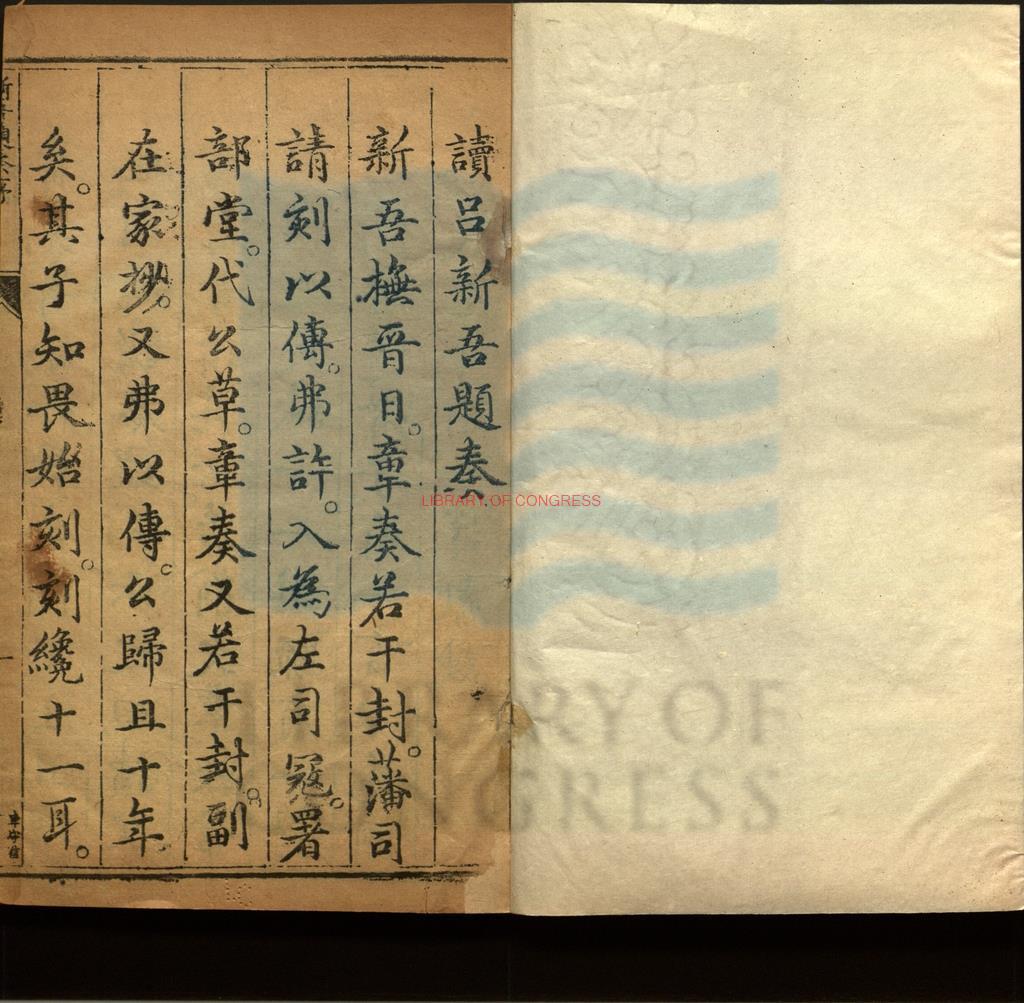 讀呂新吾題奏
新吾撫晉日。章奏若干封。藩司
請刻以傳。弗許。入為左司寇。署
部堂。代公草。章奏又若干封。副
在家抄。又弗以傳。公歸且十年
矣。其子知畏始刻。刻纔十一耳。
LIBRARY OF CONGRESS
LIBRARY OF
CONGRESS